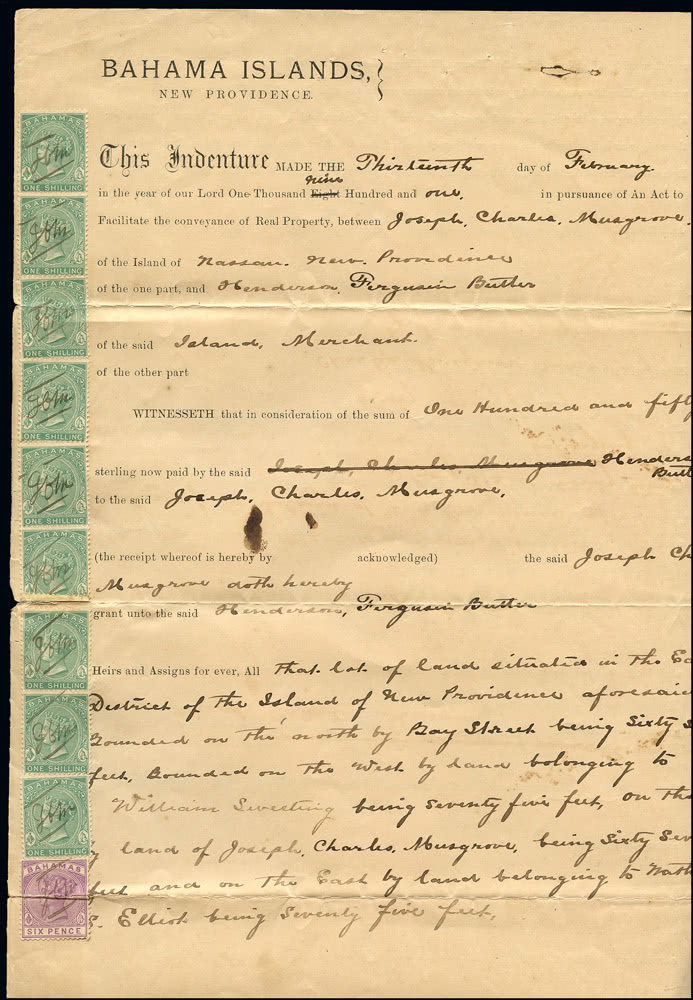 BAHAMA ISLANDS,
NEW PROVIDENCE.
This Indenture MADE THE Thirteenth day of February
nine
in the year of our Lord One Thousand Eight Hundred and one, in pursuance of An Act to
Facilitate the conveyance of Real Property, between Joseph, Charles, Musgrove,
of the Island of Nassau. New. Providence
of the one part, and Henderson, Ferguson Butler
of the said Island, Merchant.
of the other part
WITNESSETH that in consideration of the sum of One Hundred and fifty
sterling now paid by the said Joseph, Charles, Musgrove Henders
Butl
to the said Joseph, Charles, Musgrove,
(the receipt whereof is hereby by acknowledged) the said Joseph Ch
Musgrove doth hereby
grant unto the said Henderson, Ferguson Butler
Heirs and Assigns for ever, All that lot of land situated in the Ea
District of the Island of New Providence aforesaid
Bounded on the north by Bay Street being Sixty S
feet, Bounded on the West by land belonging to
William Sweeting being Seventy five feet, on the
y land of Joseph, Charles, Musgrove, being Sixty Sev
feet and on the East by land belonging to Nath
E. Elliot being Seventy five feet,
BAHAMAS
ONE SHILLING
BAHAMAS
ONE SHILLING
BAHAMAS
ONE SHILLING
BAHAMAS
ONE SHILLING
BAHAMAS
ONE SHILLING
BAHAMAS
BAHAMAS
ONE SHILLING
BAHAMAS
ONE SHILLING
BAHAMAS
ONE SHILLING
BAHAMAS
SIX PENCE